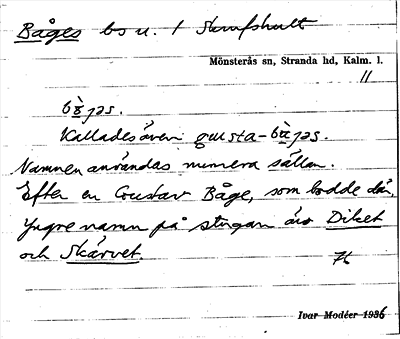 Båges bs u. 1 Stumfshult
Mönsterås sn, Stranda hd, Kalm. l.
11
Kallades även gusta-
Namnen användas numera sällan.
Efter en Gustav Båge, som bodde där.
Yngre namn på stugan äro Diket
och Skärvet.
Ivar Modéer 1936